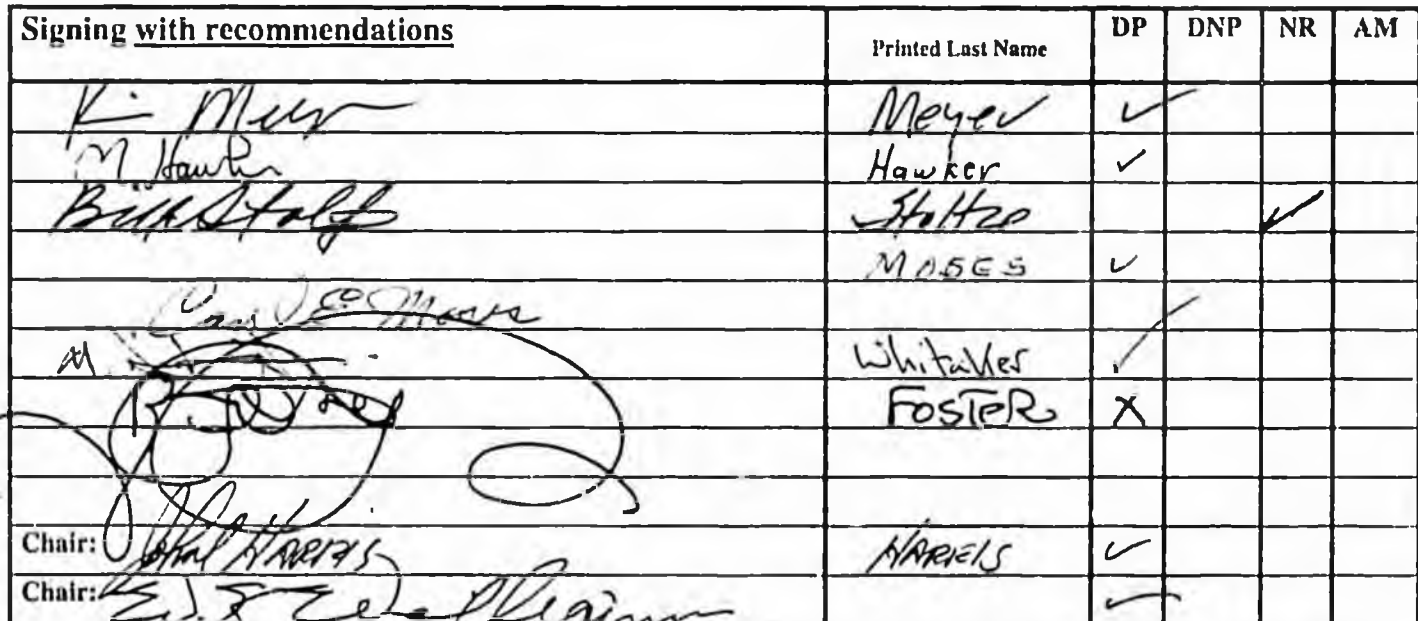 Signing with recommendations Printed Last Name DP DNP NR AM
Meyer ✓
M Hawker Hawker ✓
Bill Stoltze Stoltze ✓
MOSES ✓
Whitaker ✓
FOSTER X
Chair: John HARRIS HARRIS ✓
Chair: ✓